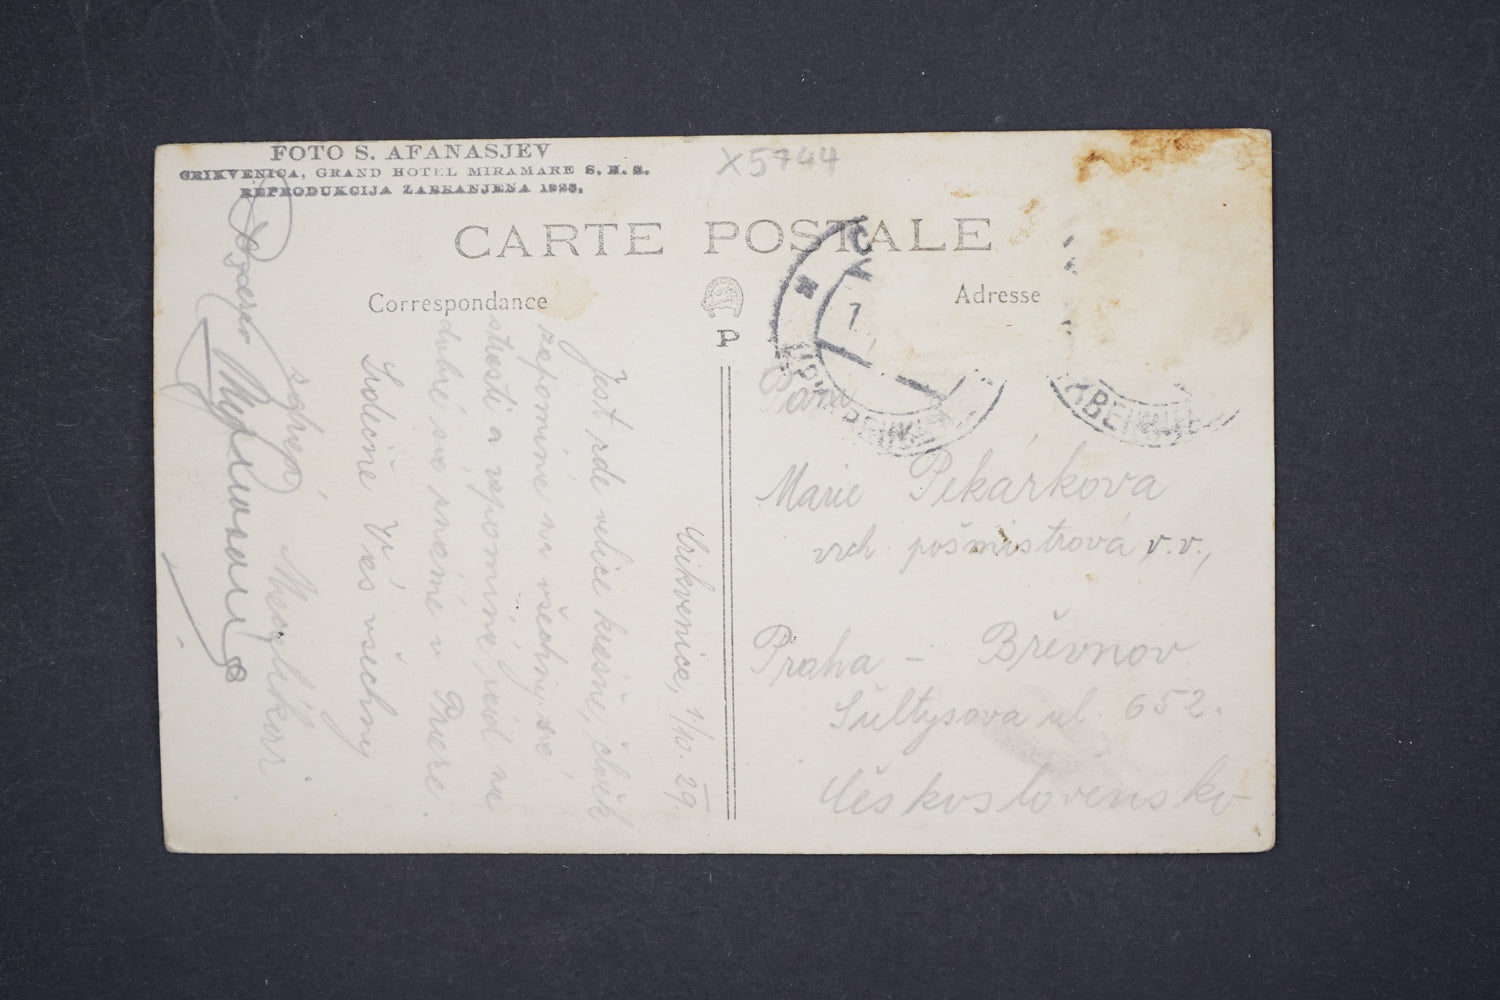 FOTO S. AFANASJEV
CRIKVENICA, GRAND HOTEL MIRAMARE S. H. S.
REPRODUKCIJA ZABRANJENA 1925.
X5744
CARTE POSTALE
Correspondance
Adresse
P
7
Crikvenica, 1/10. 29.
Jest zde velice krásně, člověk
zapomíná na všechny své
strasti a vzpomíná jen na
dobré své známé v Praze
Srdečně Vás všechny
Paní
Marie Pekárkova
vrch pošmistrová v.v.,
Praha - Břevnov
Šultysova ul. 652.
Československo